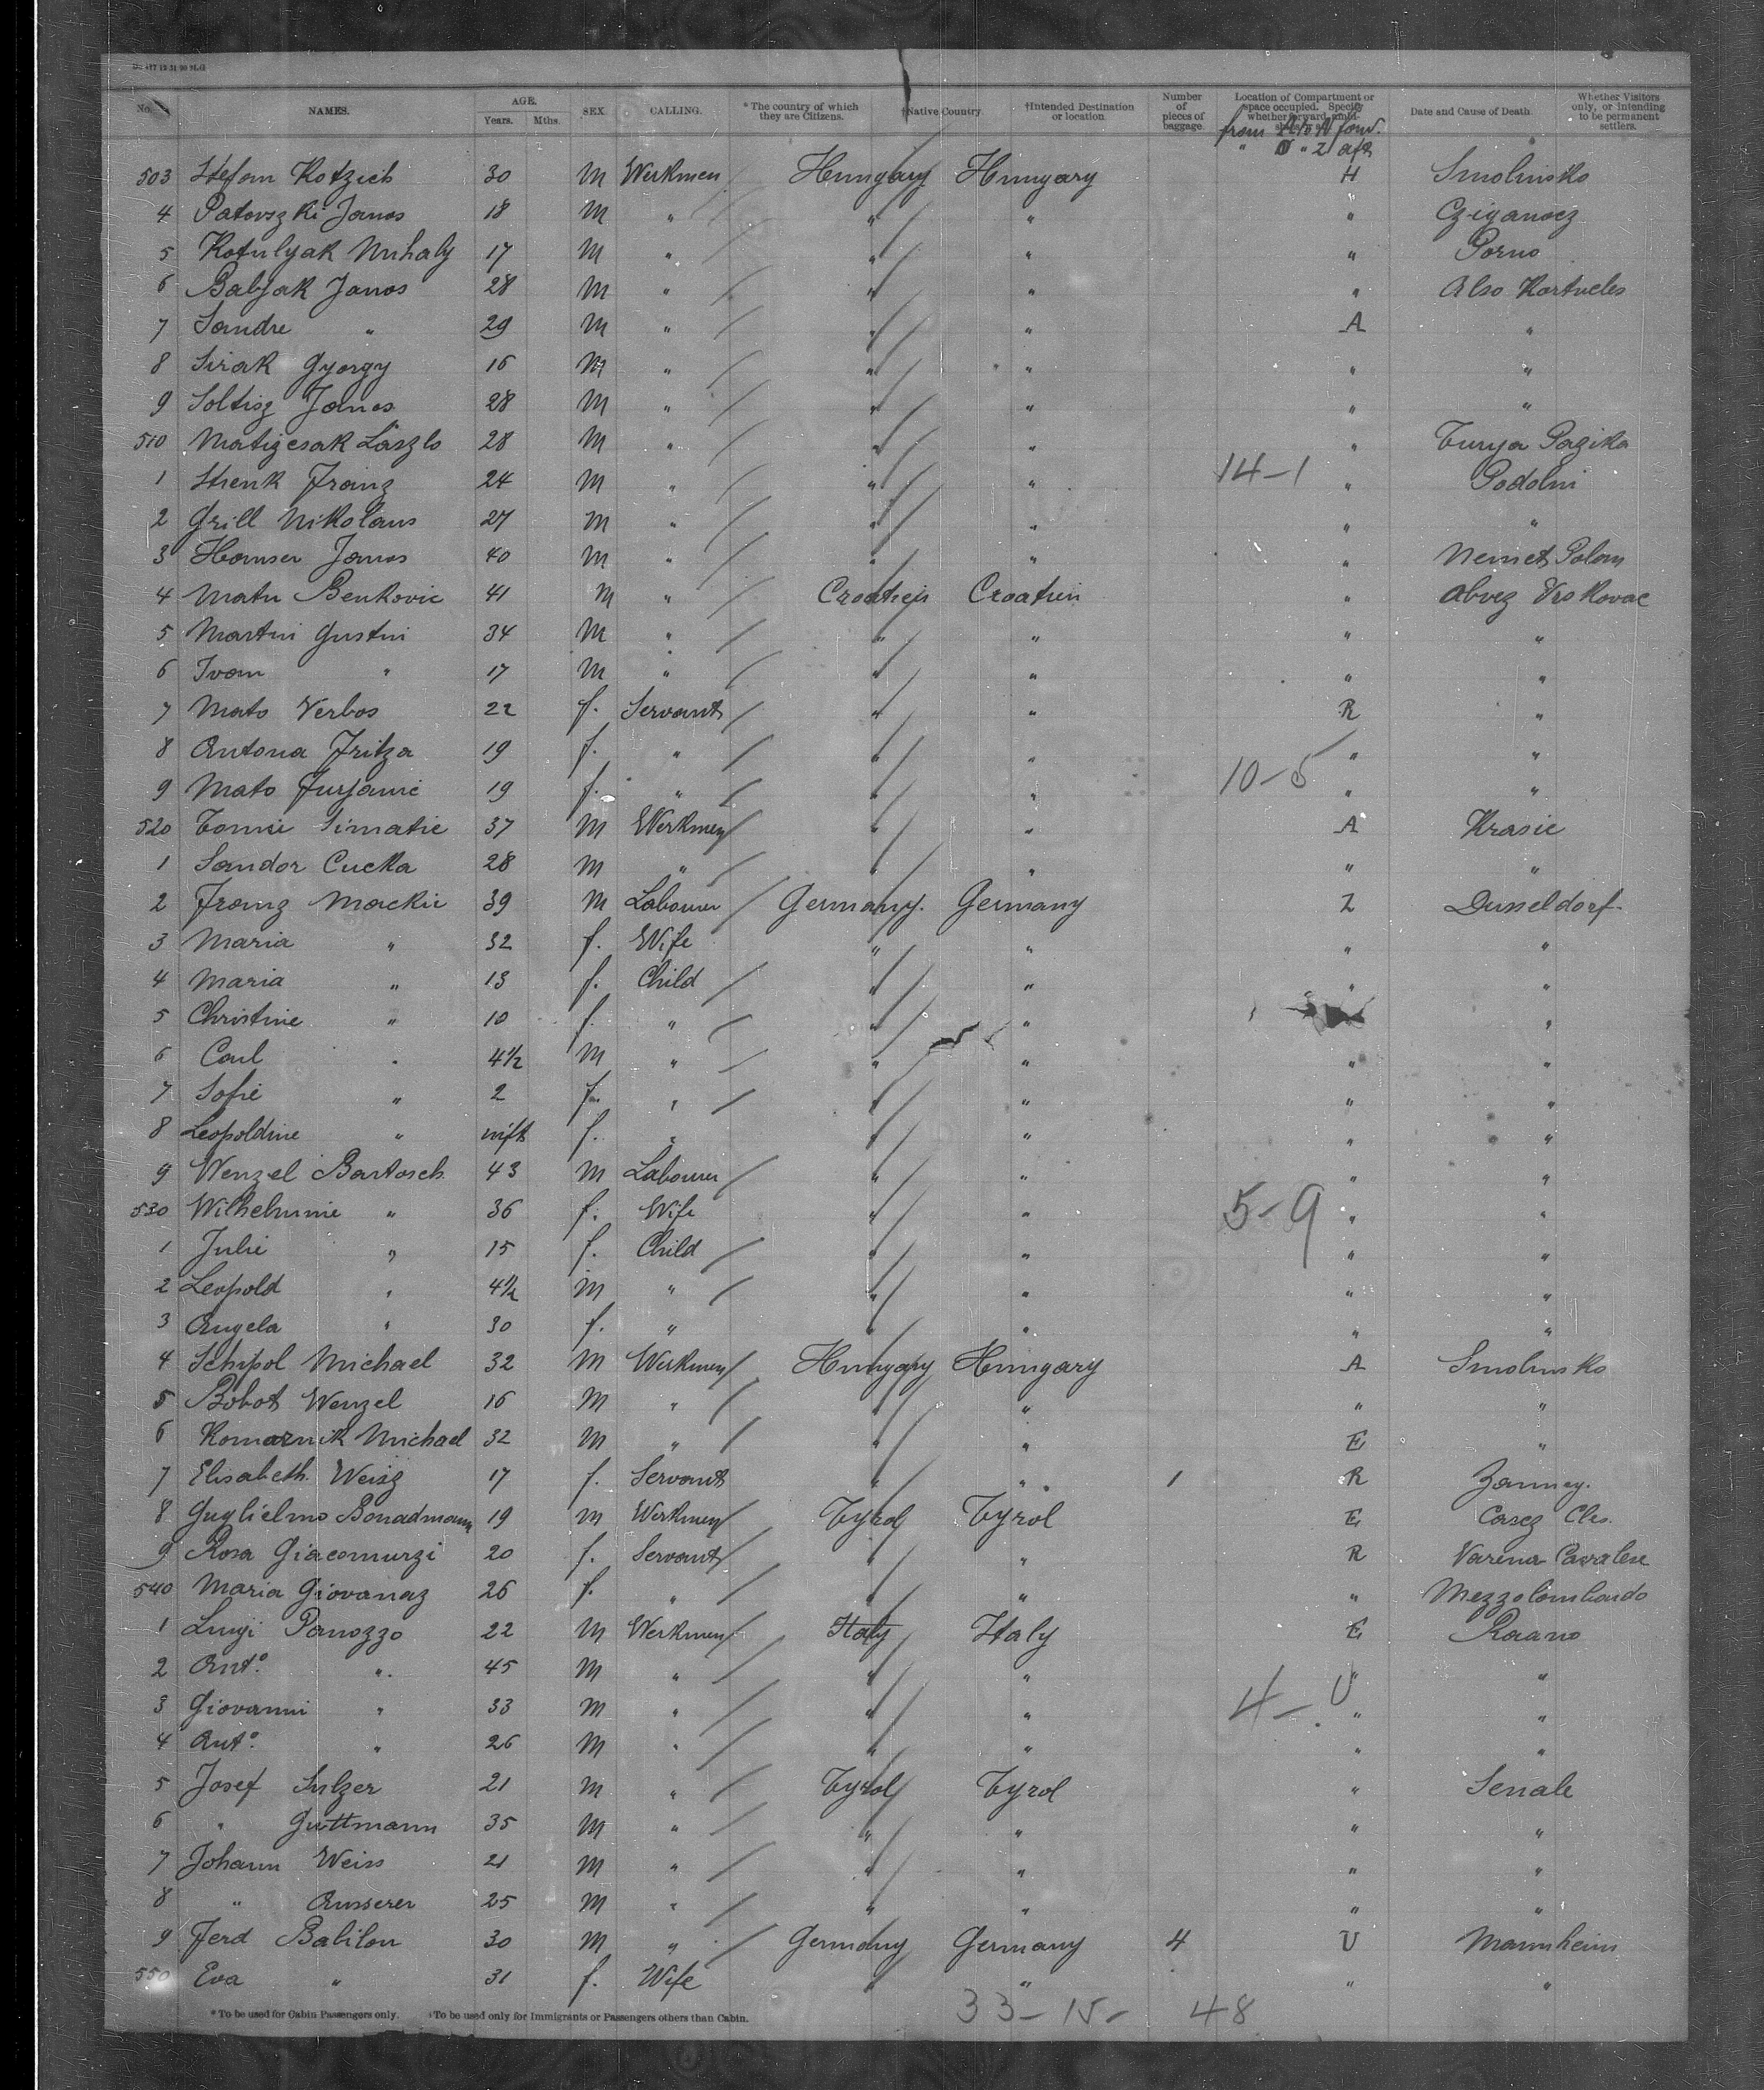 No. NAMES. AGE. Years. Mths. SEX. CALLING. * The country of which they are Citizens. †Native Country. †Intended Destination or location. Number of pieces of baggage. Location of Compartment or space occupied. Specify whether forward, Date and Cause of Death. Whether Visitors only, or intending to be permanent settlers.
from fow.
" " 2 aft
503 Stefan Kotzich 30 M Workmen Hungary Hungary H Smolinsko
4 Patovszki Janos 18 M " " " " Cziganocz
5 Kotulyak Mihaly 17 M " " " " Porno
6 Babjak Janos 28 M " " " " Also Hortveles
7 Sandre " 29 M " " " A "
8 Sirak Gyorgy 16 M " " " " "
9 Soltisz Janos 28 M " " " " "
510 Matizcsak László 28 M " " " " Turya Pazika
14-1
1 Strenk Franz 24 M " " " " Podolin
2 Grill Nikolaus 27 M " " " " "
3 Hamser Janos 40 M " " " " Nemet Polom
4 Matu Benkovic 41 M " Croatien Croatien "
5 Martin Gustin 34 M " " " " "
6 Ivan " 17 M " " " " "
7 Mato Verbos 22 f. Servant " " R "
8 Antona Fritza 19 f. " " " " "
10-5
9 Mato Jurjanic 19 f. " " " " "
520 Tomie Simatic 37 M Workmen " " A Krasic
1 Sandor Cucka 28 M " " " " "
2 Franz Mackie 39 M Labourer Germany. Germany Z Dusseldorf.
3 Maria " 32 f. Wife " " " "
4 Maria " 13 f. Child " " " "
5 Christine " 10 f. " " " "
6 Carl " 4½ M " " " " "
7 Sofie " 2 f. " " " " "
8 Leopoldine " inft f. " " " " "
9 Wenzel Bartosch 43 M Labourer " " " "
5-9
530 Wilhelmine " 36 f. Wife " " " "
1 Julie " 15 f. Child " " " "
2 Leopold " 4½ M " " " " "
3 Angela " 30 f. " " " " "
4 Schipol Michael 32 M Workmen Hungary Hungary A Smolinsko
5 Bobot Wenzel 16 M " " " " "
6 Komarnik Michael 32 M " " " E "
7 Elisabeth Weisz 17 f. Servant " " 1 R
8 Guglielmo Bonadmann 19 M Workmen Tyrol Tyrol E Casez Cles.
9 Rosa Giacomurzi 20 f. Servant " " R Varena Cavalese
540 Maria Giovanaz 26 f. " " " " Mezzolombardo
1 Luigi Panozzo 22 M Workmen Italy Italy E Roano
2 Ant.o " 45 M " " " " "
4- U
3 Giovanni " 33 M " " " " "
4 Ant.o " 26 M " " " " "
5 Josef Sulzer 21 M " Tyrol Tyrol " Senale
6 " Guttmann 35 M " " " " "
7 Johann Weiss 21 M " " " " "
8 " Ausserer 25 M " " " " "
9 Ferd Babilon 30 M " Germany Germany 4 U Mannheim
550 Eva " 31 f. Wife " " " "
33-15- 48
* To be used for Cabin Passengers only. †To be used only for Immigrants or Passengers others than Cabin.